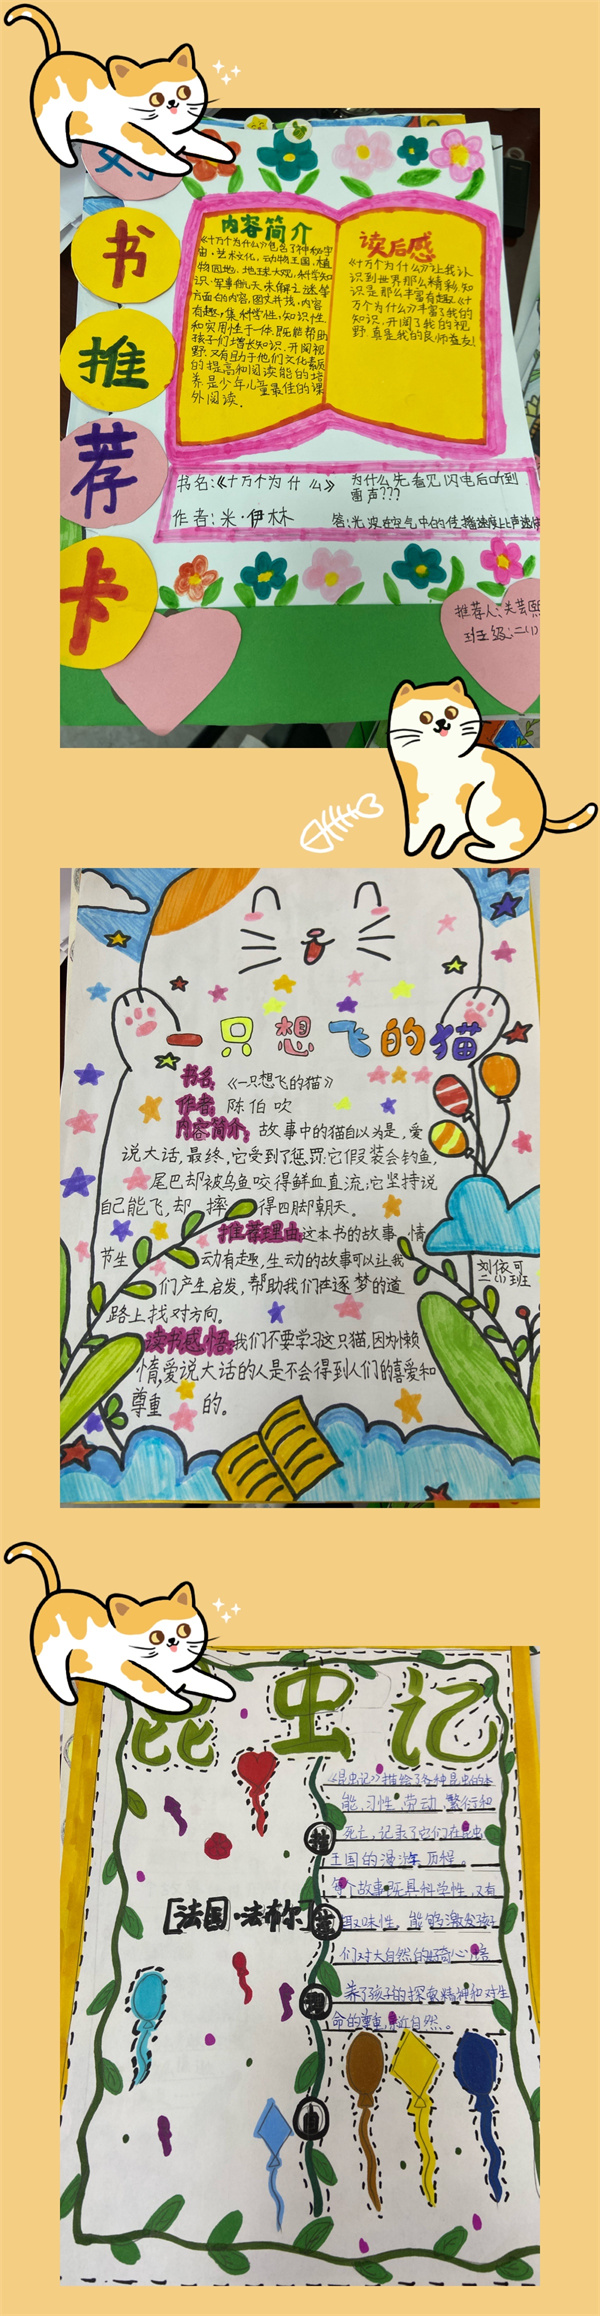 好
书
推
荐
卡
内容简介
《十万个为什么》包含了神秘宇
宙、艺术文化、动物王国、植
物园地、地球大观、科学知
识、军事航天、未解之谜等
方面的内容,图文并茂,内容
有趣,集科学性,知识性
和实用性于一体,既能帮助
孩子们增长知识,开阔视
野,又有助于他们文化素质
的提高和阅读能的培
养,是少年儿童最佳的课
外阅读。
读后感
《十万个为什么》让我认
识到世界那么精彩,知
识是那么丰富有趣。《十
万个为什么》丰富了我的
知识,开阔了我的视
野,真是我的良师益友!
书名:《十万个为什么》
作者:米·伊林
为什么先看见闪电后听到
雷声???
答:光波在空气中的传播速度比声速快
推荐人:关芸熙
班级:二(1)
一只想飞的猫
书名:《一只想飞的猫》
作者:陈伯吹
内容简介:故事中的猫自以为是,爱
说大话,最终,它受到了惩罚:它假装会钓鱼,
尾巴却被乌鱼咬得鲜血直流;它坚持说
自己能飞,却摔得四脚朝天。
推荐理由:这本书的故事情
节生动有趣,生动的故事可以让我
们产生启发,帮助我们在逐梦的道
路上找对方向。
读书感悟:我们不要学习这只猫,因为懒
惰,爱说大话的人是不会得到人们的喜爱和
尊重的。
刘依可
二(1)班
昆虫记
[法国·法布尔]
推
荐
理
由
《昆虫记》描绘了各种昆虫的本
能、习性、劳动、繁衍和
死亡,记录了它们在昆虫
王国的漫游历程。
每个故事既具科学性,又有
趣味性,能够激发孩
们对大自然的好奇心,培
养了孩子的探索精神和对生
命的尊重,亲近自然。